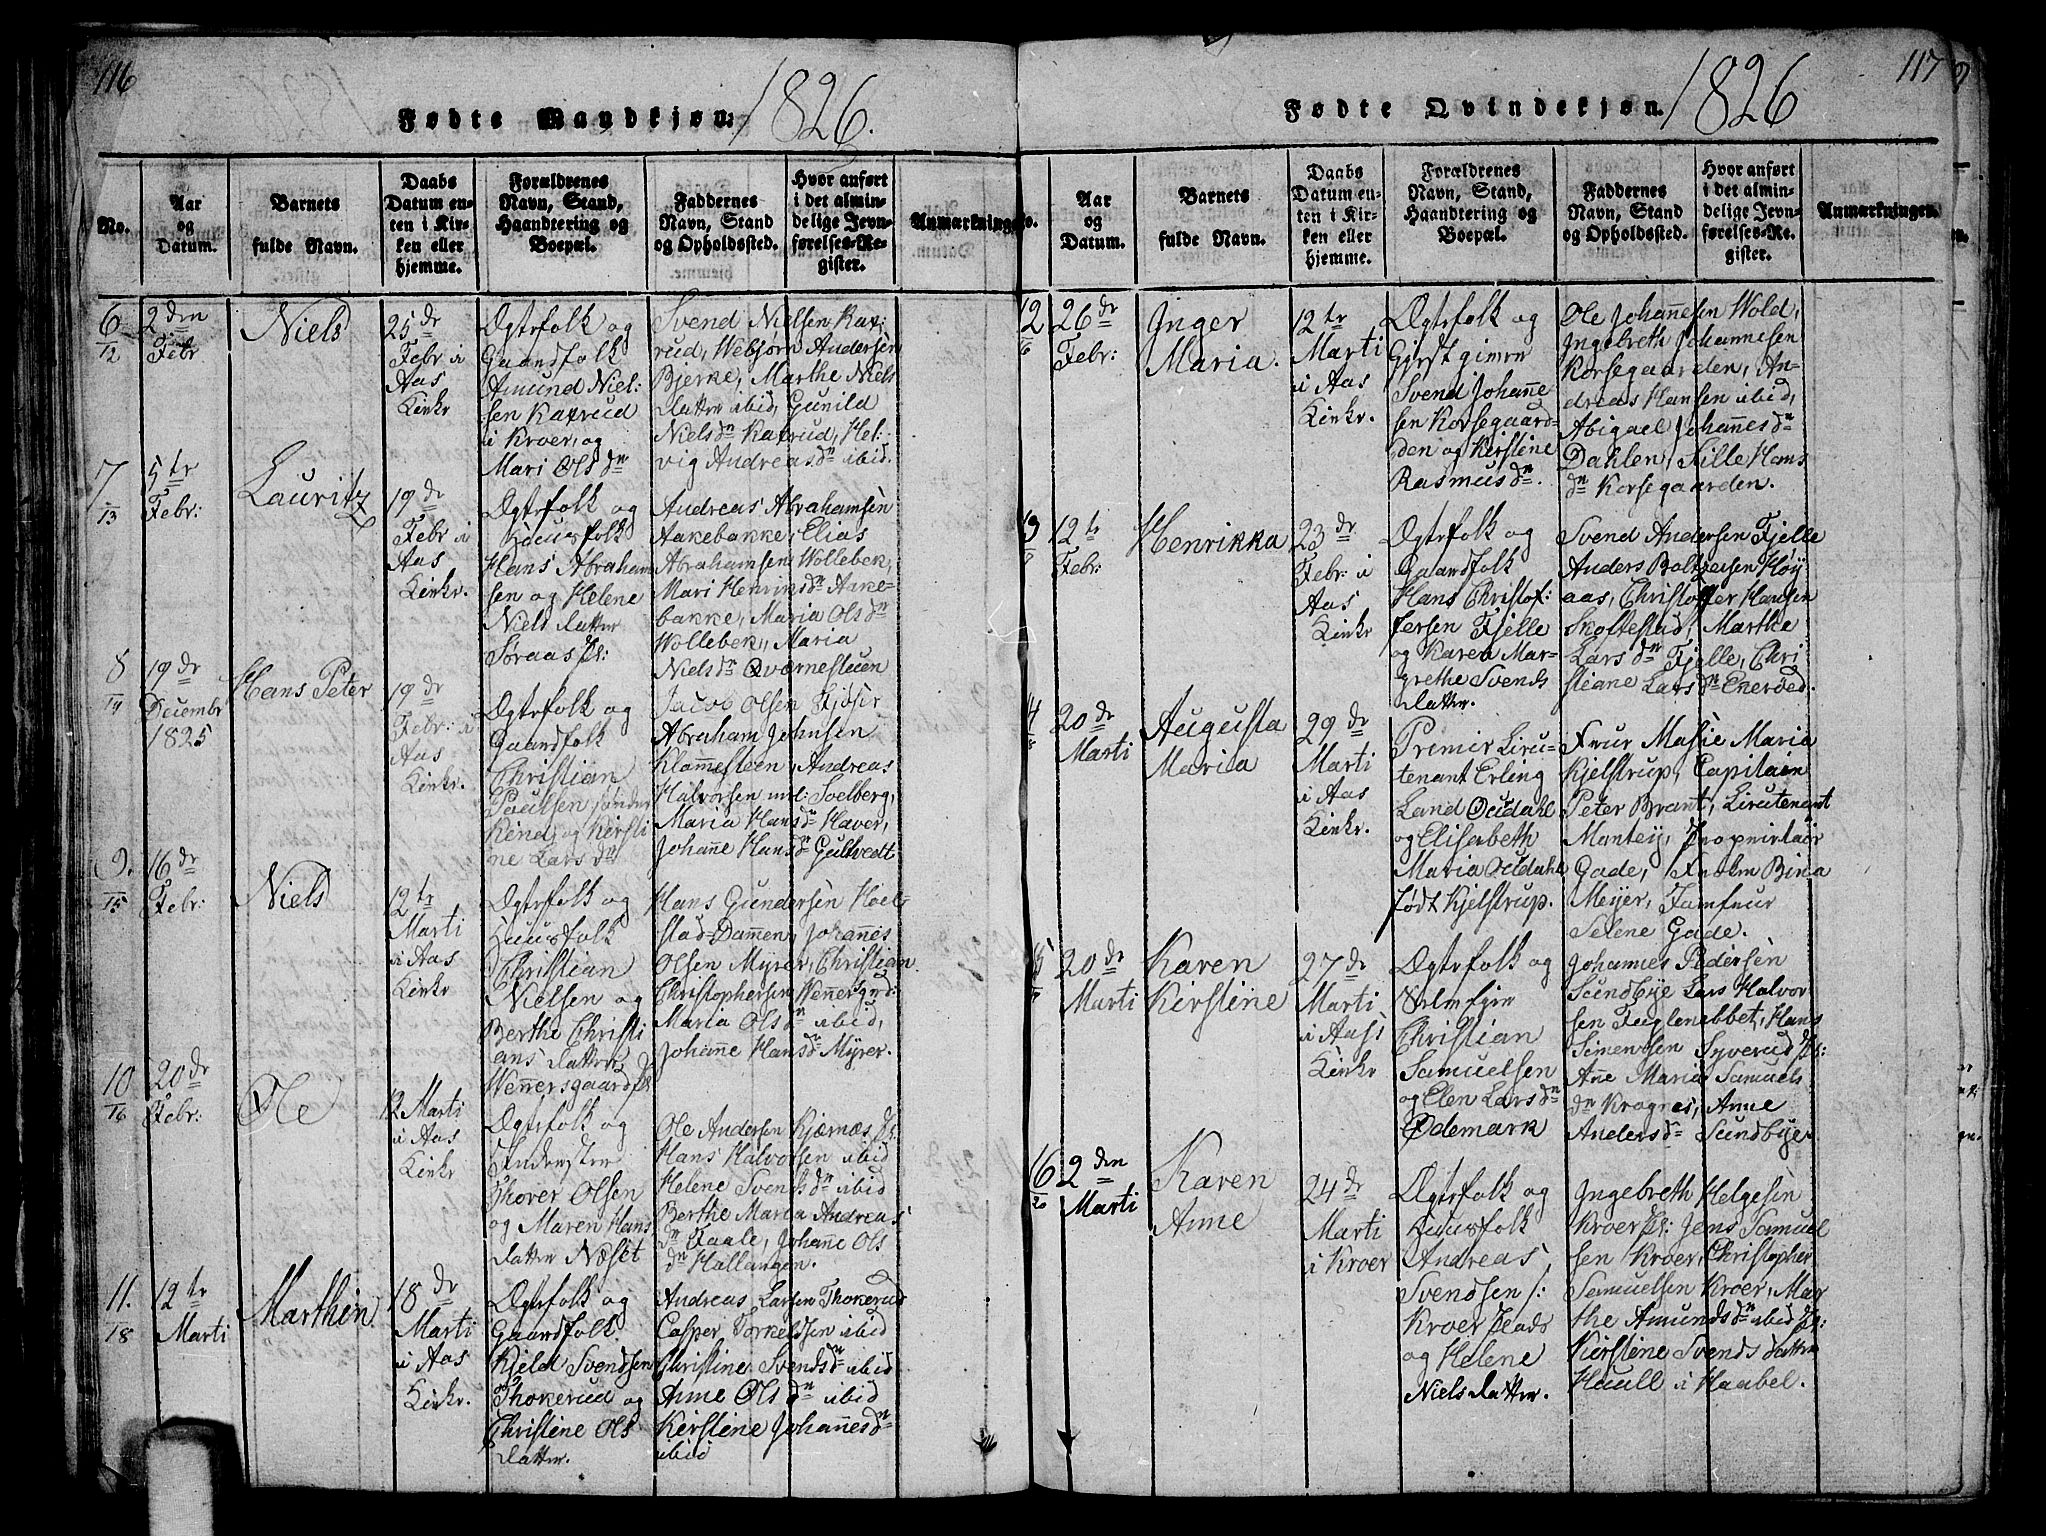 116
Fødte Mandkjøn. 1826.
No.
Aar
og
Datum.
Barnets
fulde Navn.
Daabs
Datum en-
ten i Kir-
ken eller
hjemme.
Forældrenes
Navn, Stand,
Haandtering og
Boepæl.
Faddernes
Navn, Stand
og Opholdssted.
Hvor anført
i det almin-
delige Jevn-
førelses-Re-
gister.
Anmærkninger.
6
12
2den
Febr
Niels
25de
Febr i
Aas
Kirke
Ægtefolk og
Gaardfolk
Amund Niel:
sen Kaxrud
i Kroer, og
Mari Olsdn
Svend Nielsen Kax:
rud, Webjørn Andersen
Bjerke, Marthe Niels
datter ibid, Gunild
Nielsdn Kaxrud, Hel:
vig Andreasdn ibid.
7
13
5te
Febr:
Lauritz
19de
Febr i
Aas
Kirke.
Ægtefolk og
Huusfolk
Hans Abraham
sen og Helene
Niels datter
Søraas pl:
Andreas Abrahamsen
Aakebakke, Elias
Abrahamsen Wollebek,
Mari Henriksdn Aake-
bakke, Maria Olsdn
Wollebek, Maria
Nielsdn Qværnestuen
8
14
19de
Decembr
1825
Hans Peter
19de
Febr: i
Aas
Kirke.
Ægtefolk og
Gaardfolk
Christian
Paulsen sønder
Kinn og Kirsti
ne Larsdn
Jacob Olsen Fjøser
Abraham Johnsen
Klommesteen, Andreas
Halvorsen Solberg,
Maria Hansdn Haver,
Johanne Hansdn Gultvedt
9.
15
16de
Febr:
Niels
12te
Marti
i Aas
Kirke
Ægtefolk og
Huusfolk
Christian
Nielsen og
Berthe Christi
ans datter
Wennersgaard pl
Hans Gundersen Hoel-
stad-Dammen, Johannes
Olsen Myrer, Christian
Christophersen Wennersgrd:
Maria Olsdn ibid,
Johanne Hansdn Myrer.
10
16
20de
Febr:
Ole
12 Marti
i Aas
Kirke
Ægtefolk og
Inderster
Thover Olsen
og Maren Hans
datter Næset
Ole Andersen Kjærnæs pl:
Hans Halvorsen ibid
Helene Svendsdn ibid
Berthe Maria Andreas
dn Faale, Johanne Ols
dn Hallangen.
11.
18
12te
Marti
Marthin
18de
Marti
i Aas
Kirke.
Ægtefolk og
Gaardfolk
Kield Svendsen
Thokerud og
Christine Ols
datter.
Andreas Larsen Thokerud
Casper Torkeldsen ibid
Christine Svendsdn ibid
Anne Olsdn ibid
Kirstine Johannesdn
ibid
117
Fødte Qvindekjøn. 1826
No.
Aar
og
Datum.
Barnets
fulde Navn.
Daabs
Datum en-
ten i Kir-
ken eller
hjemme.
Forældrenes
Navn, Stand,
Haandtering og
Boepæl.
Faddernes
Navn, Stand
og Opholdssted.
Hvor anført
i det almin-
delige Jevn-
førelses-Re-
gister.
Anmærkninger.
12
26de
Febr:
Inger
Maria.
12te
Marti
i Aas
Kirke.
Ægtefolk og
Gjestgiver
Svend Johanne
sen Korsegaar-
den og Kirstine
Rasmusdn.
Ole Johannesen Wold,
Ingebreth Johannesen
Korsegaarden, An-
dreas Hansen ibid,
Abigael Johannesdn
Dahlen, Sille Hans
dn Korsegaarden.
13
12te
Febr:
Henrikka
23de
Febr i
Aas
Kirke
Ægtefolk og
Gaardfolk
Hans Christof:
fersen Fjelle
og Karen Mar-
grethe Svends
datter.
Svend Andersen Fjelle
Anders Baltzersen Høy
aas, Christoffer Hansen
Skoltestad, Marthe
Larsdn Fjelle, Chri
stiane Larsdn Enerøed.
14
20de
Marti
Augusta
Maria
29de
Marti
i Aas
Kirke.
Premier Lieu-
tenant Erling
Land Ouldahl
og Elisabeth
Maria Ouldahl
født Kjelstrup.
Frue Masie Maria
Kjelstrup, Capitain
Peter Brant, Lieutenant
Mantey, Proprietair
Gade, Frøken Bina
Meyer, Jomfrue
Selene Gade.
15
20de
Marti
Karen
Kirstine
27de
Marti
i Aas
Kirke
Ægtefolk og
Selveier
Christian
Samuelsen
og Elen Larsdn
Ødemark
Johannes Pedersen
Sundbye Lars Halvor
sen Fuglenebbet, Hans
Simensen Syverud pl:
Anne Maria Samuels
dn Krognes, Anne
Andersdn Sundbye.
16
20
2den
Marti
Karen
Anne
24de
Marti
i Kroer
Ægtefolk og
Huusfolk
Andreas
Svendsen /:
Kroer Plads
og Helene
Niels datter.
Ingebreth Helgesen
Kroer pl: Jens Samuel
sen Kroer, Christopher
Samuelsen Kroer, Mar
the Amundsdn ibid pl:
Kirstine Svends datter
Haull i Haabel.